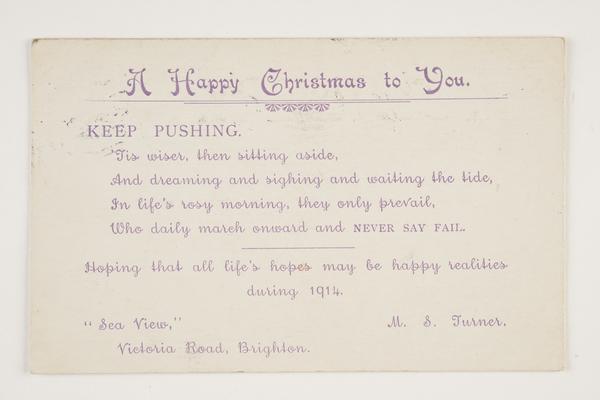 A Happy Christmas to You.
KEEP PUSHING.
'Tis wiser, then sitting aside,
And dreaming and sighing and waiting the tide,
In life's rosy morning, they only prevail,
Who daily march onward and NEVER SAY FAIL.
Hoping that all life's hopes may be happy realities
during 1914.
"Sea View," M. S. Turner.
Victoria Road, Brighton.